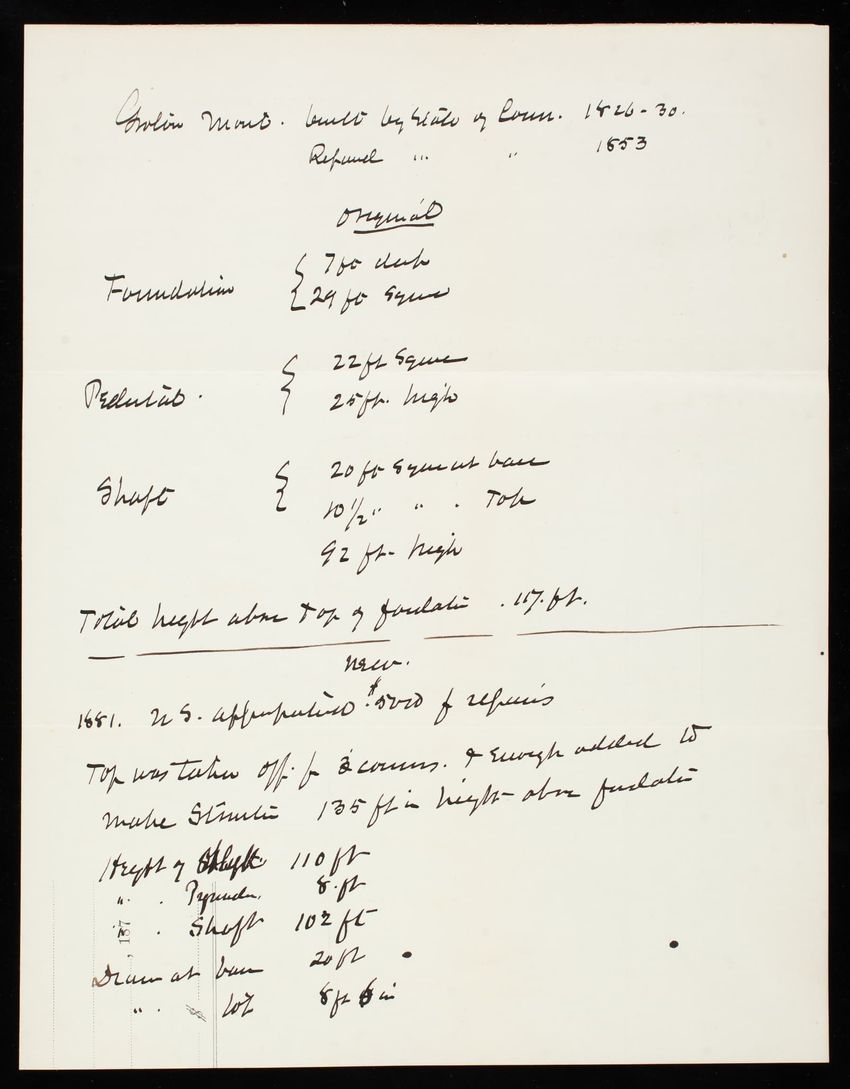 Groton Mont. built by State of Conn. 1826-30.
Repaired " " 1853
Original
Foundation { 7 ft deep
{ 29 ft Square
Pedestal. { 22 ft Square
{ 25 ft. high
Shaft { 20 ft Square at base
10 1/2 " " . Top
92 ft. high
Total height above top of foundation . 117. ft.
New.
1881. U S. appropriated $5000 for repairs
Top was taken off for 3 courses. & Enough added to
make Structure 135 ft in height above foundation
Height of 110 ft
" . Pyramidn. 8. ft
" . Shaft 102 ft
Diam at base 20 ft
" . top 8 ft 6 in
, 187